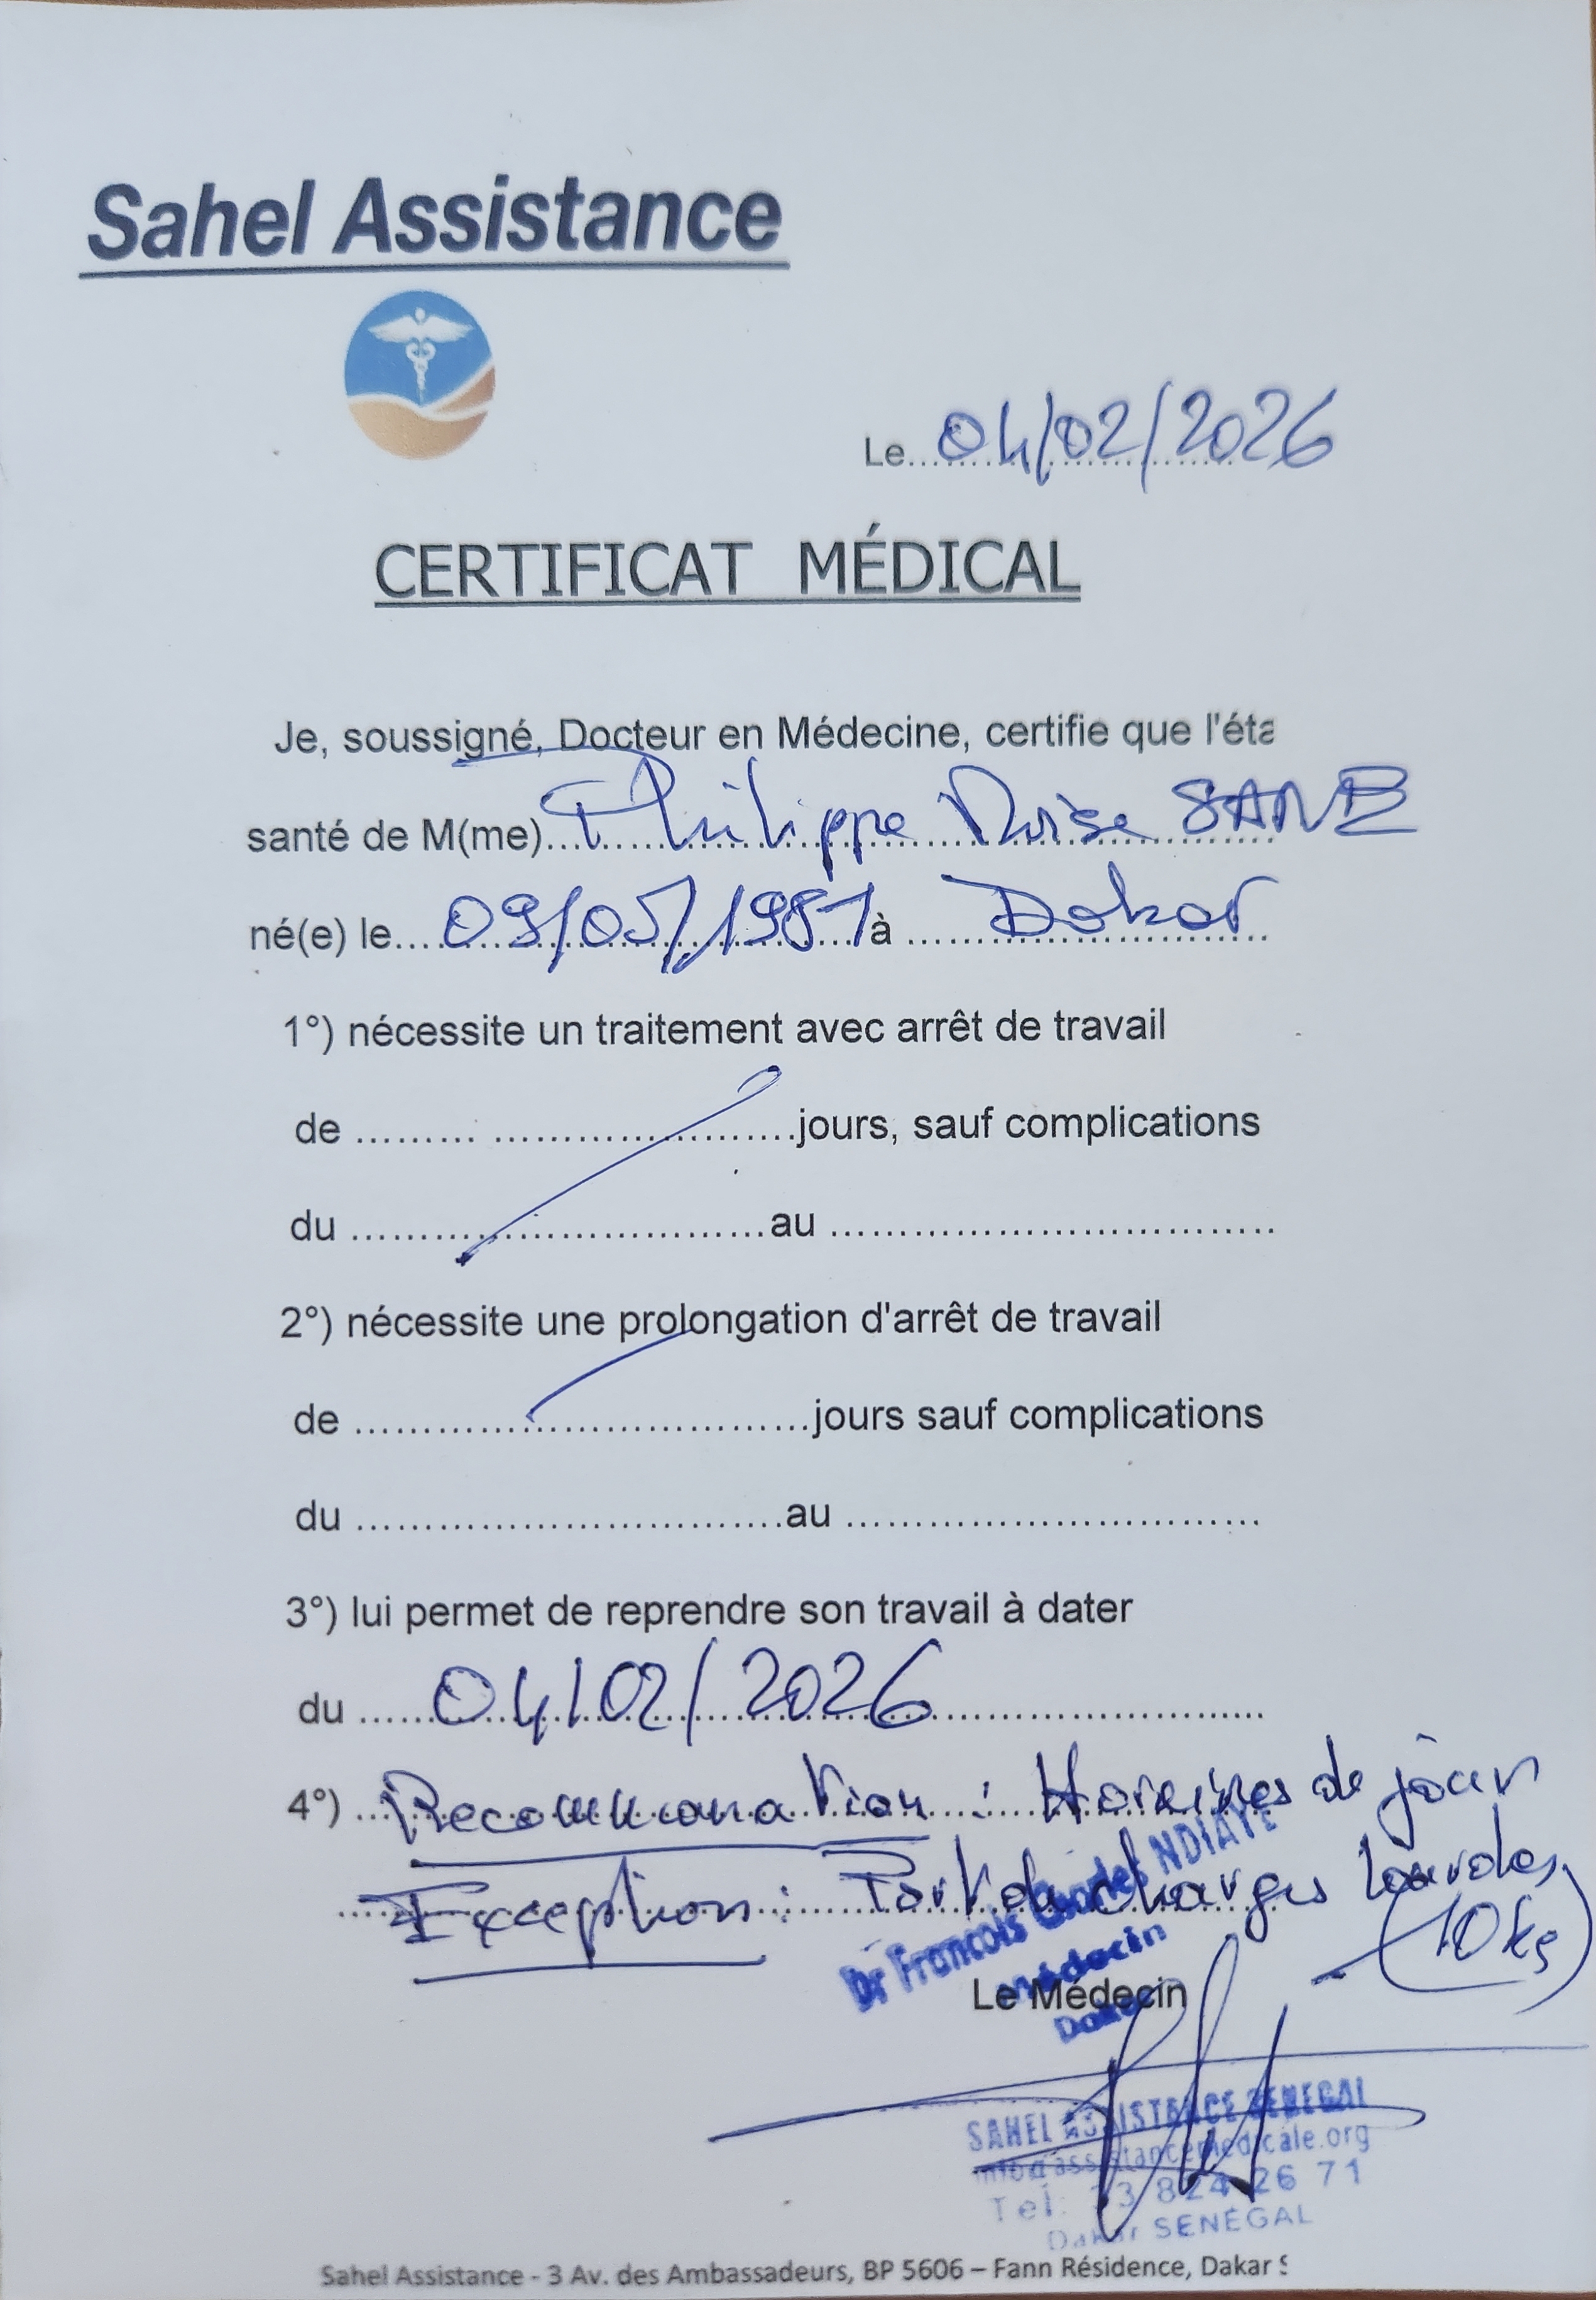 Sahel Assistance
Le...04/02/2026
CERTIFICAT MÉDICAL
Je, soussigné, Docteur en Médecine, certifie que l'éta
santé de M(me)...Philippe SANE
né(e) le....09/05/1981 à ...Dakar
1°) nécessite un traitement avec arrêt de travail
de ......... ..........................jours, sauf complications
du ....................................au ......................................
2°) nécessite une prolongation d'arrêt de travail
de .......................................jours sauf complications
du .....................................au ....................................
3°) lui permet de reprendre son travail à dater
du ......04/02/2026......
4°) ...Recommandation : Horaires de jour
Exception : Port de charges lourdes
(10kg)
Dr Francois NDIAYE
Médecin
Le Médecin
Dakar
SAHEL ASSISTANCE SENEGAL
info@assistancemedicale.org
Tel: 33 824 26 71
Dakar SENEGAL
Sahel Assistance - 3 Av. des Ambassadeurs, BP 5606 – Fann Résidence, Dakar S